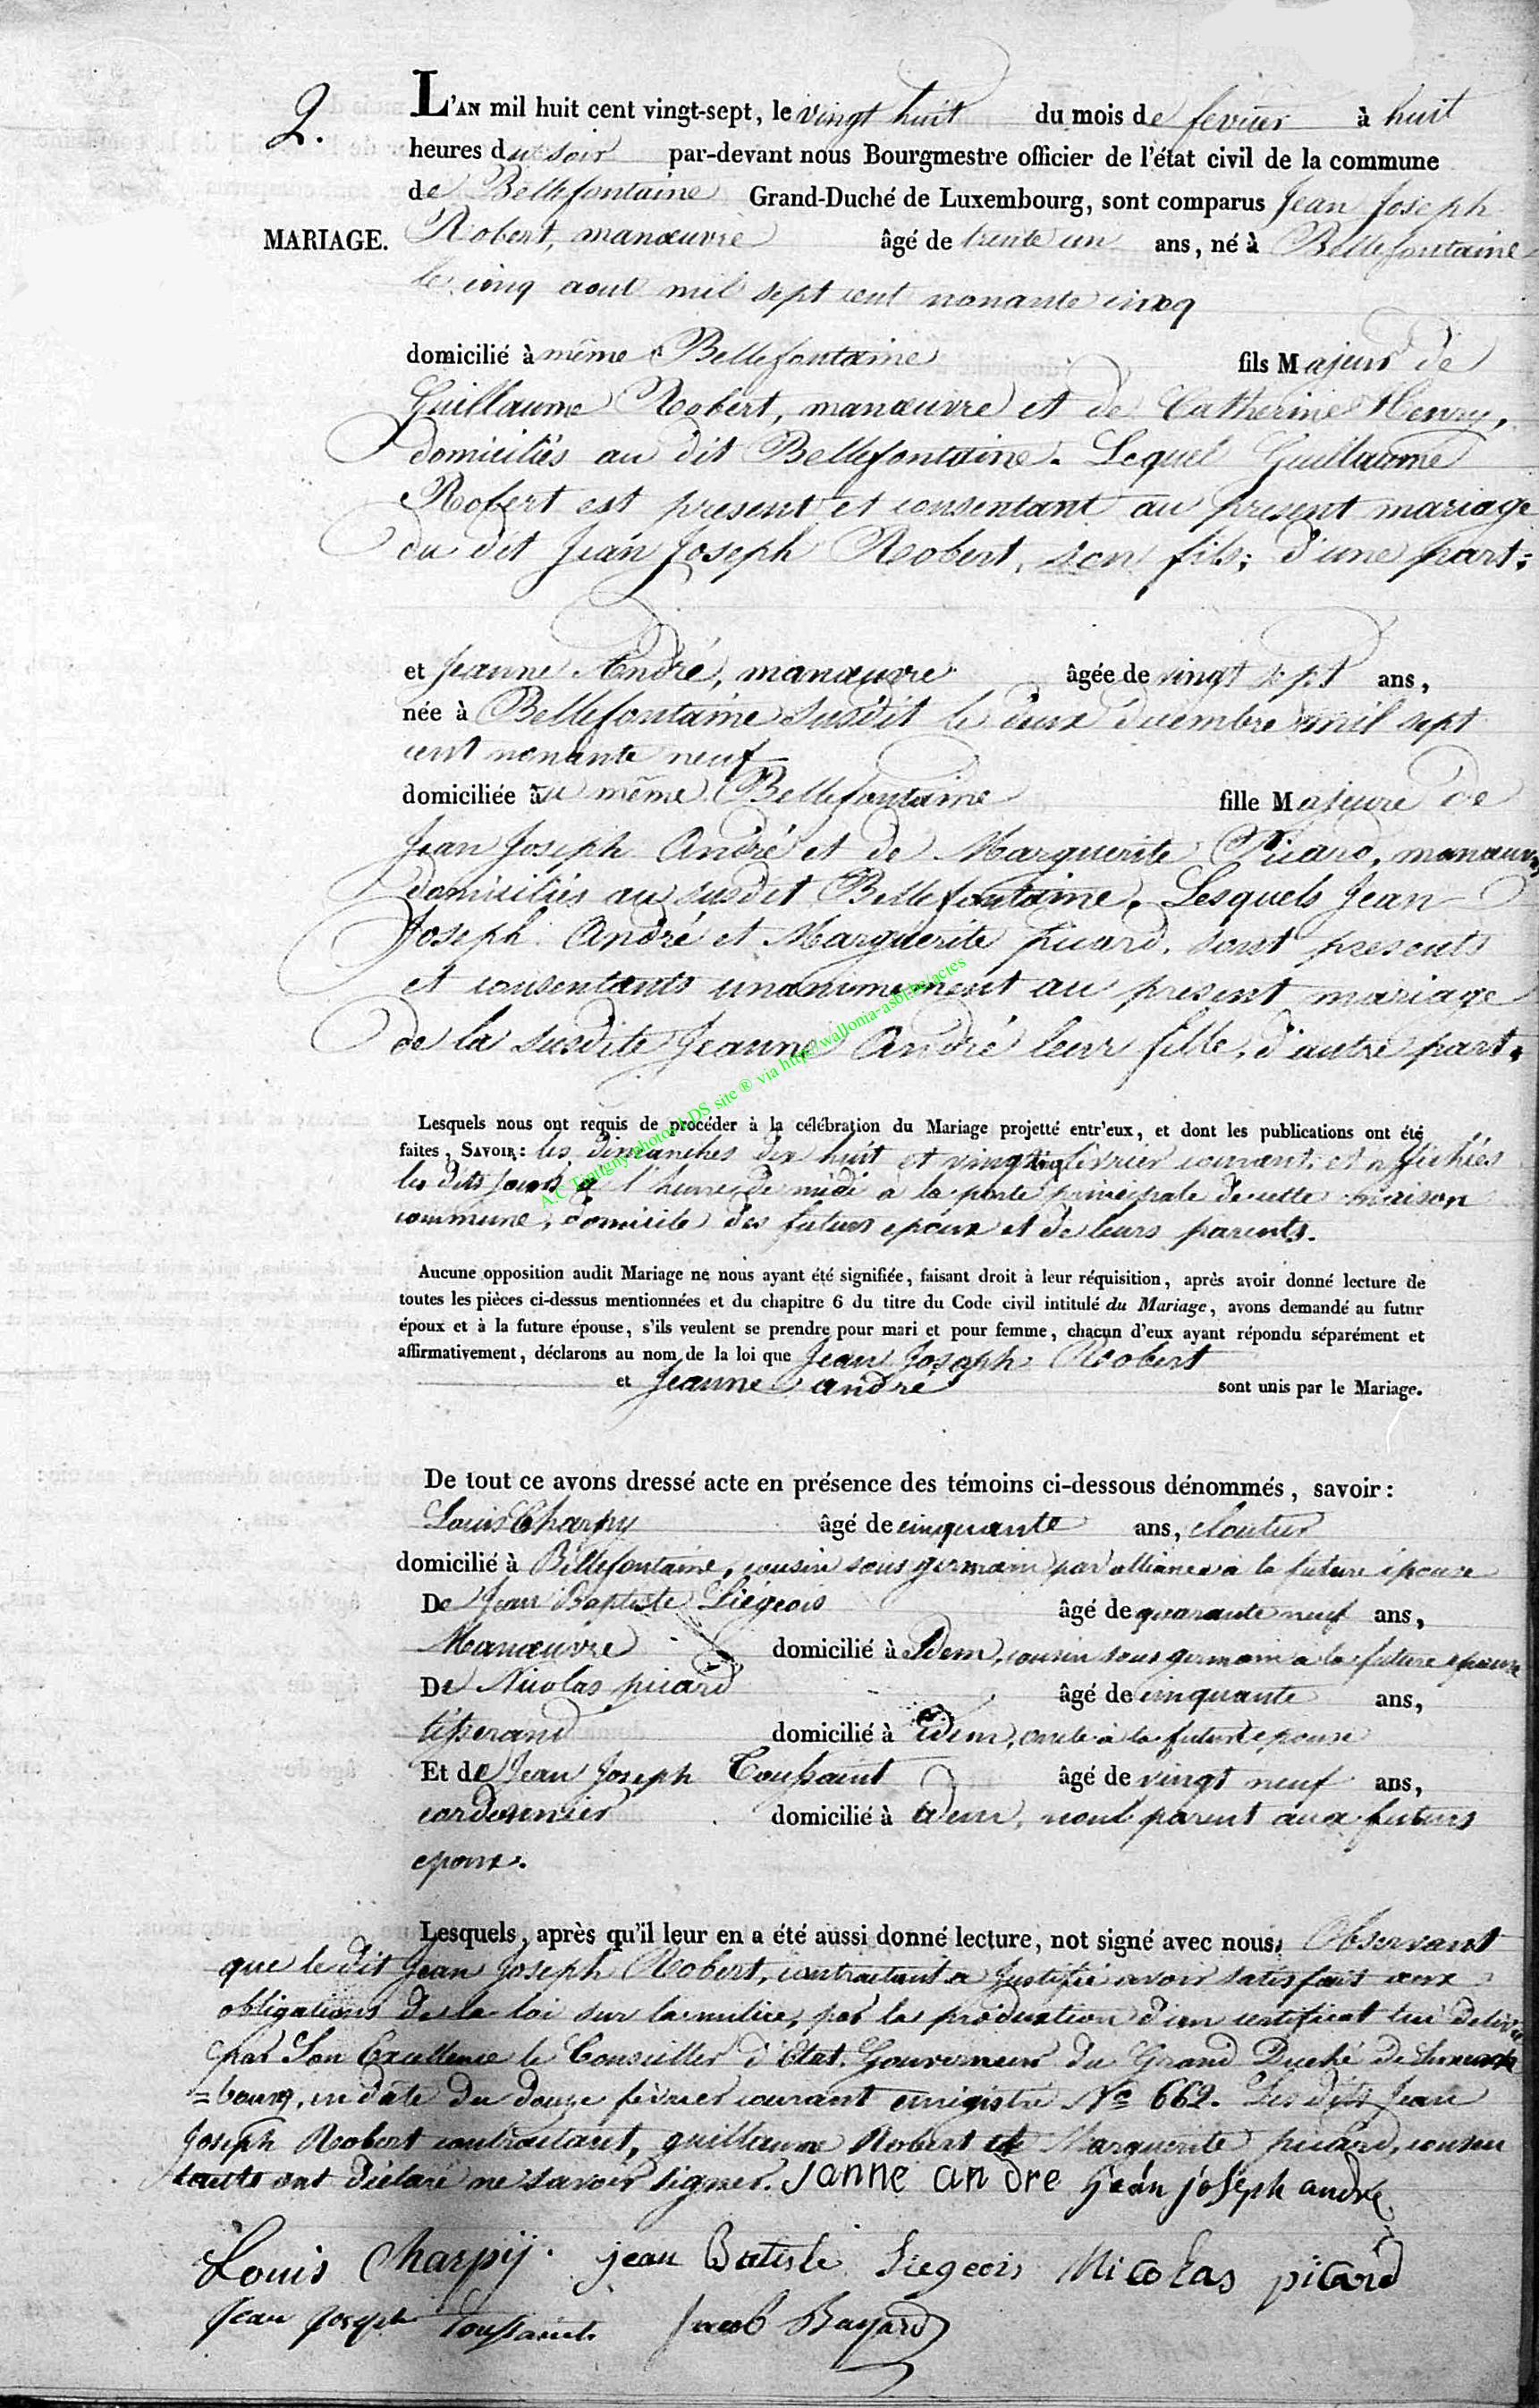 2.
L'AN mil huit cent vingt-sept, le vingt huit du mois de fevrier à huit
heures du soir par-devant nous Bourgmestre officier de l'état civil de la commune
de Bellefontaine Grand-Duché de Luxembourg, sont comparus Jean Joseph
MARIAGE. Robert, manœuvre âgé de trente un ans, né à Bellefontaine
le cinq aout mil sept cent nonante cinq
domicilié à même Bellefontaine fils Majeur de
Guillaume Robert, manœuvre et de Catherine Henry,
domiciliés au dit Bellefontaine. Lequel Guillaume
Robert est present et consentant au present mariage
du dit Jean Joseph Robert, son fils; d'une part;
et Jeanne André, manœuvre âgée de vingt sept ans,
née à Bellefontaine susdit le deux decembre mil sept
cent nonante neuf
domiciliée au même Bellefontaine fille Majeure de
Jean Joseph André et de Marguerite Picard, manœuvres
domiciliés au susdit Bellefontaine. Lesquels Jean
Joseph André et Marguerite picard, sont presents
et consentants unanimement au present mariage
de la susdite Jeanne André leur fille, d'autre part.
A.C Tintigny photos LDS site ® via http://wallonia-asbl.be/actes
Lesquels nous ont requis de procéder à la célébration du Mariage projetté entr'eux, et dont les publications ont été
faites, SAVOIR: les dimanches dix huit et vingt cinq février courant, et affichés
les dits jours à l'heure de midi à la porte principale de cette maison
commune, domicile des futurs epoux et de leurs parents.
Aucune opposition audit Mariage ne nous ayant été signifiée, faisant droit à leur réquisition, après avoir donné lecture de
toutes les pièces ci-dessus mentionnées et du chapitre 6 du titre du Code civil intitulé du Mariage, avons demandé au futur
époux et à la future épouse, s'ils veulent se prendre pour mari et pour femme, chacun d'eux ayant répondu séparément et
affirmativement, déclarons au nom de la loi que Jean Joseph Robert
et Jeanne andré sont unis par le Mariage.
De tout ce avons dressé acte en présence des témoins ci-dessous dénommés, savoir:
Louis Charpy âgé de cinquante ans, cloutier
domicilié à Bellefontaine, cousin sous germain par alliance à la future épouse
De Jean Baptiste Liégeois âgé de quarante neuf ans,
Manœuvre domicilié à Idem, cousin sous germain a la future epouse
De Nicolas picard âgé de cinquante ans,
tisserand domicilié à idem, oncle à la future epouse
Et de Jean Joseph Toussaint âgé de vingt neuf ans,
cordonnier domicilié à idem, non parent aux futurs
epoux.
Lesquels, après qu'il leur en a été aussi donné lecture, not signé avec nous. Observant
que le dit Jean Joseph Robert, contractant a justifié avoir satisfait aux
obligations de la loi sur la milice, par la production d'un certificat lui delivré
par Son Excellence le Conseiller d'Etat, Gouverneur du Grand Duché de Luxem
=bourg, en date du douze février courant enrégistré No 662. Les dits Jean
Joseph Robert contractant, guillaume Robert et Marguerite picard, consen
tants ont déclaré ne savoir signer. Janne andre jean joseph andre
Louis Charpÿ. jean Batiste Liegeois Nicolas picard
Jean joseph Toussaint Jacob Bayard